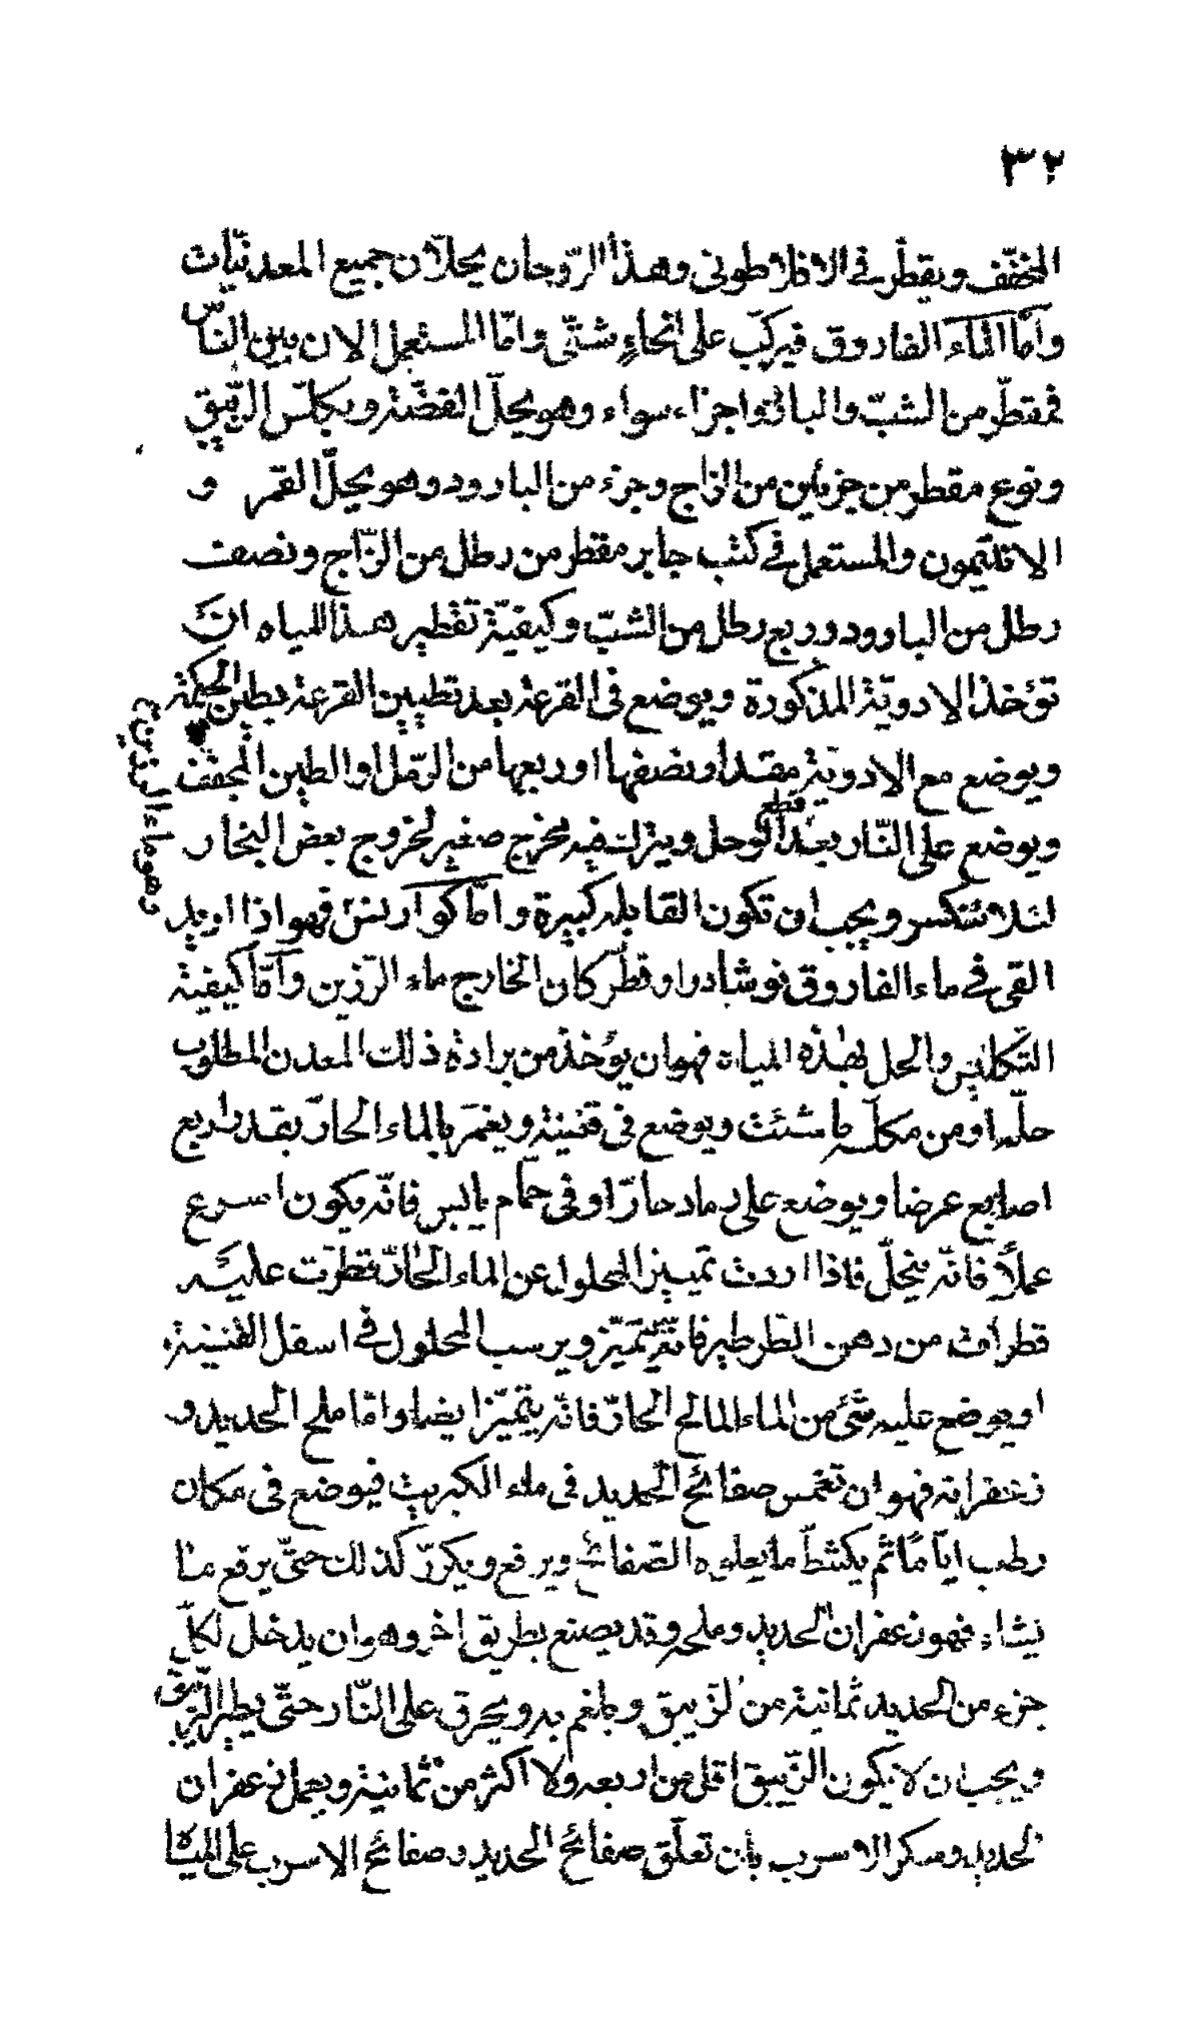 ٣٢
المخفّف ويقطّر في الافلاطونى وهذا الرّوحان يحلّان جميع المعدنيّات
وامّا الماء الفاروق فيركّب على انحاءٍ شتّى وامّا المستعمل الان بين النّاس
فمقطّر من الشبّ والبارود اجزاء سواء وهو يحلّ الفضّة ويكلّس الزّيبق
ونوع مقطر من جزئين من الزاج وجزء من البارود وهو يحلّ القمر و
الاقليميون والمستعمل في كتب جابر مقطر من رطل من الزّاج ونصف
رطل من البارود وربع رطل من الشبّ وكيفيّة تقطير هذا المياه ان
تؤخذ الادويّة المذكورة ويوضع فى القرعة بعد تطيين القرعة بطين الحكمة
ويوضع مع الادويّة مقدار نصفها او ربعها من الرّمل او الطين المجفّف
ويوضع على النّار بعد قطع الوحل ويترك فيه مخرج صغير لخروج بعض البخار
لئلا تنكسر ويجب ان تكون القابله كبيرة وامّا كوآريس فهو اذا اريد
القى في ماء الفاروق نوشادرا وقطّر كان الخارج ماء الرّزين وامّا كيفيّة
التكليس والحل بهذه المياه فهو ان يؤخذ من برادة ذلك المعدن المطلوب
حلّه او من مكلّسه ما شئت ويوضع فى قنينة ويغمر بالماء الحارّ بقدر اربع
اصابع عرضا ويوضع على رماد حارّ او فى حمّام يابس فانّه يكون اسرع
عملاً فانّه ينحلّ فاذا اردت تمييز المحلول عن الماء الحارّ قطرت عليه
قطرات من دهن الطّرطير فانّه يتميّز ويرسب المحلول في اسفل القنينة
او يوضع عليه شئ من الماء المالح الحارّ فانّه يتميّز ايضا وامّا ملح الحديد و
زعفرانه فهو ان تغمس صفائح الحديد فى ماء الكبريت فيوضع فى مكان
رطب ايّامًا ثم يكشطّ ما يعلوه الصّفائح ويرفع ويكرّر كذلك حتّى يرفع ما
يشاء فهو زعفران الحديد وملحه وقد يصنع بطريق اخر وهو ان يدخل لكلّ
جزء من الحديد ثمانية من الزيبق ويلغم به ويحرق على النّار حتّى يطير الزّيبق
ويجب ان لا يكون الزّيبق اقل من اربعه ولا اكثر من ثمانية ويعمل زعفران
الحديد وسكر الاسرب بان تعلّق صفائح الحديد وصفائح الاسرب على المياه
وهو ماء الرزين